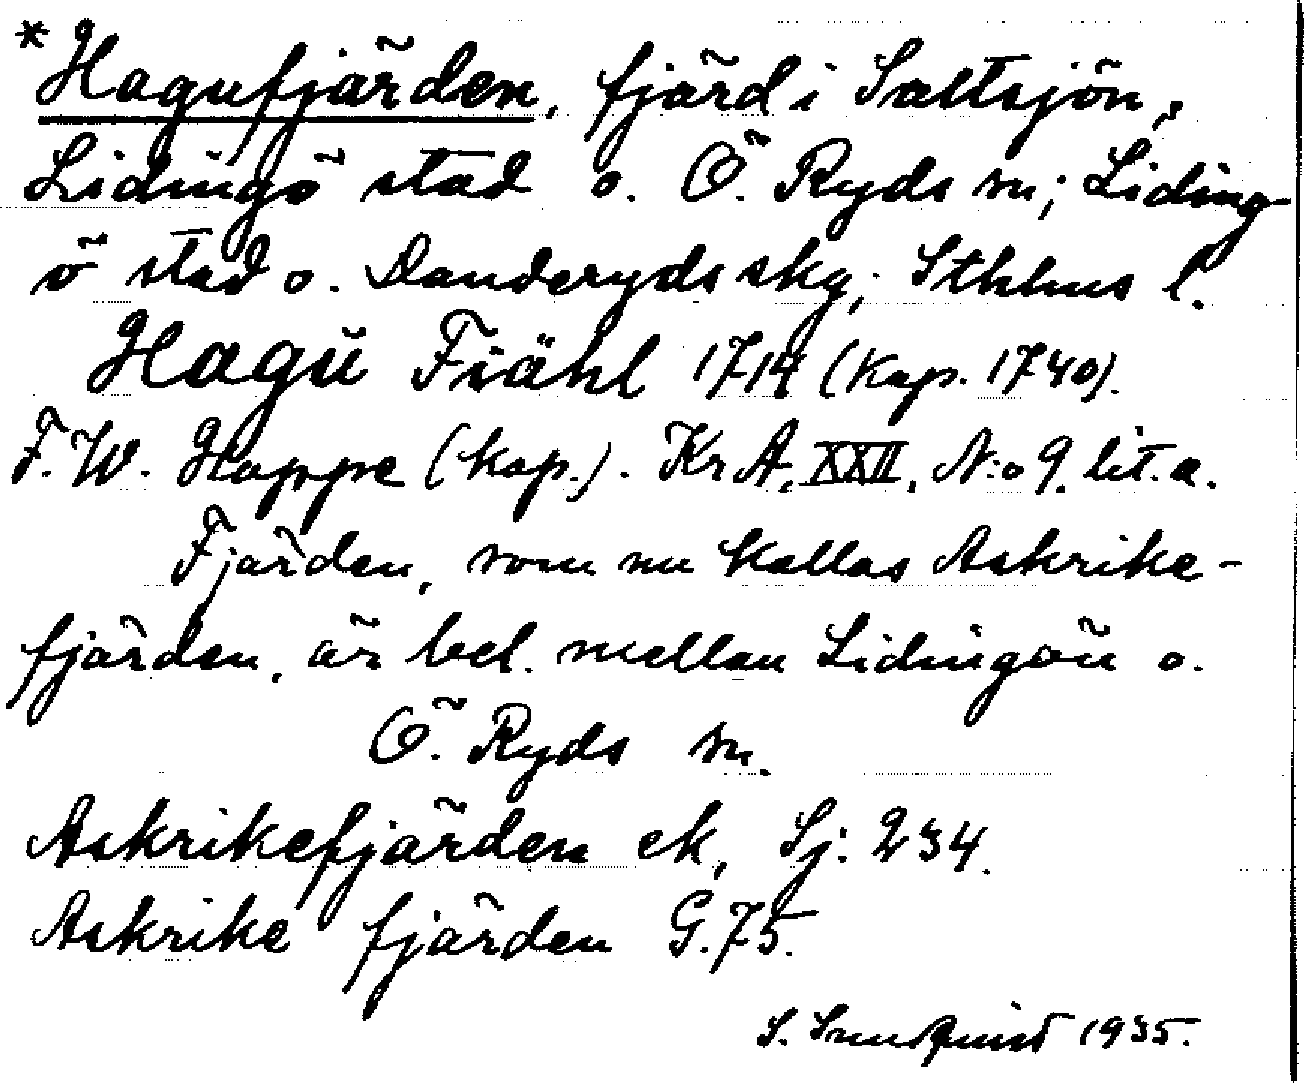 *Hagufjärden, fjärd i Saltsjön,
Lidingö stad o. Ö. Ryds sn; Liding-
ö stad o. Danderyds skg; Sthlms l.
Hagu Fiähl 1714 (kop. 1740).
F. W. Hoppe (kop.). Kr A, XXII, N:o 9. lit. a.
Fjärden, som nu kallas Askrike-
fjärden, är bel. mellan Lidingön o.
Ö. Ryds sn.
Askrikefjärden ek, Sj: 234.
Askrike fjärden G. 75.
S. Sundquist 1935.